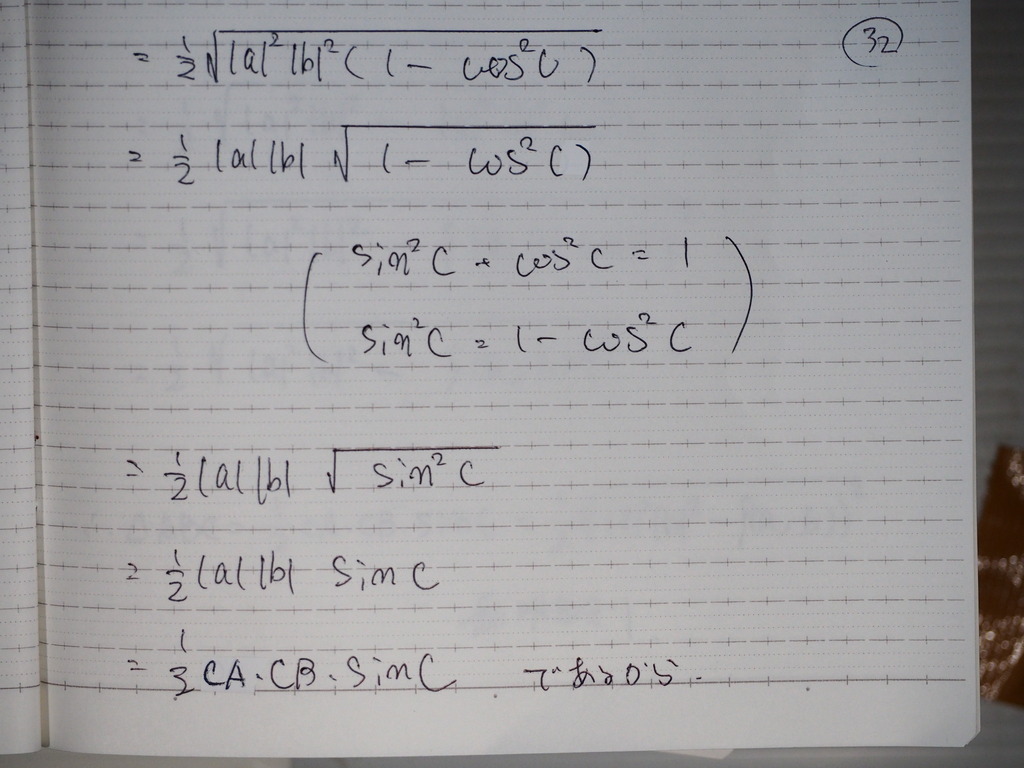 32
= 1/2 √|a|²|b|²(1 - cos²C)
= 1/2 |a||b| √1 - cos²C)
( sin²C + cos²C = 1
sin²C = 1 - cos²C )
= 1/2 |a||b| √sin²C
= 1/2 |a||b| sin C
= 1/2 CA・CB・sin C であるから.